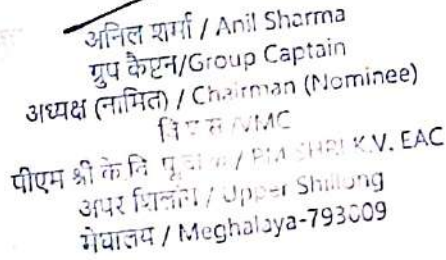 अनिल शर्मा / Anil Sharma
ग्रुप कैप्टन/Group Captain
अध्यक्ष (नामित) / Chairman (Nominee)
वि प्र स /VMC
पीएम श्री के.वि. / PM SHRI K.V. EAC
अपर शिलांग / Upper Shillong
मेघालय / Meghalaya-793009